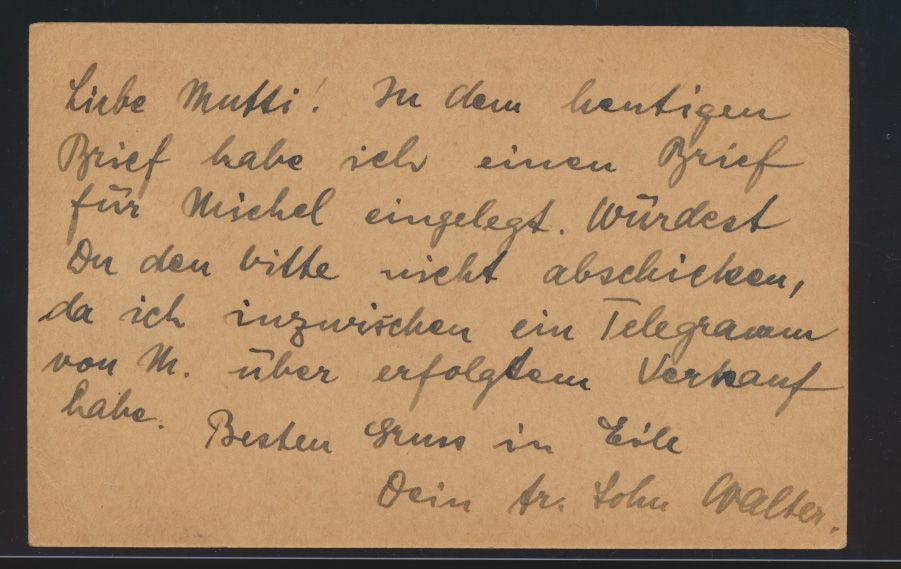 Liebe Mutti! In dem heutigen
Brief habe ich einen Brief
für Michel eingelegt. Würdest
Du den bitte nicht abschicken,
da ich inzwischen ein Telegramm
von M. über erfolgtem Verkauf
habe.
Besten Gruss in Eile
Dein tr. Sohn Walter.